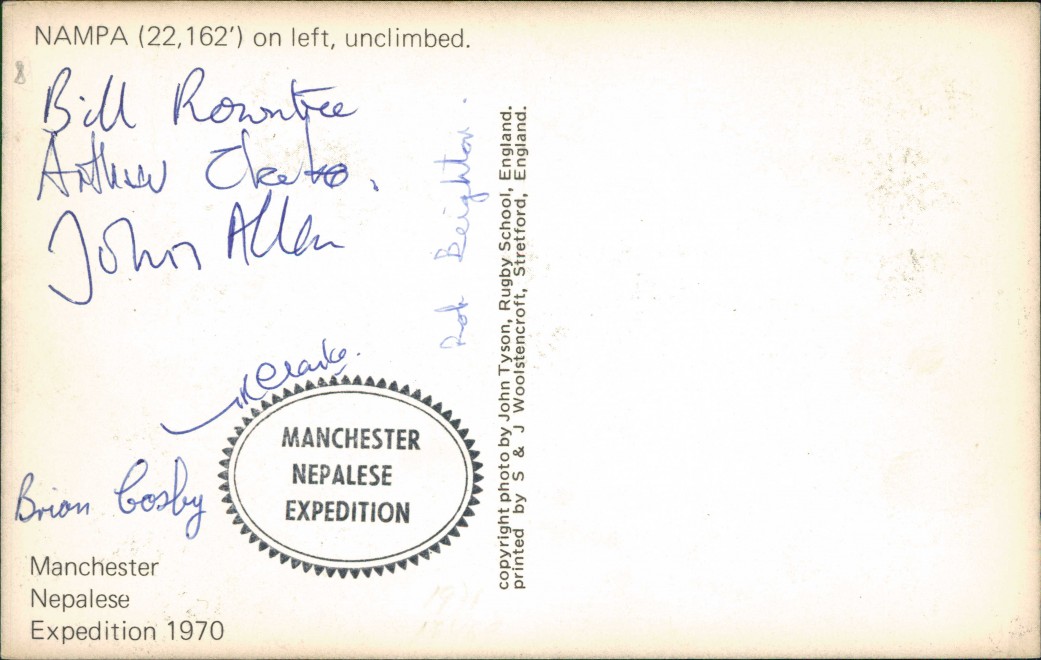 NAMPA (22,162') on left, unclimbed.
Bill Rowntree
Arthur
John Allen
Rob Beighton.
Clarke.
MANCHESTER
NEPALESE
EXPEDITION
Brian Cosby
Manchester
Nepalese
Expedition 1970
copyright photo by John Tyson, Rugby School, England.
printed by S & J Woolstencroft, Stretford, England.